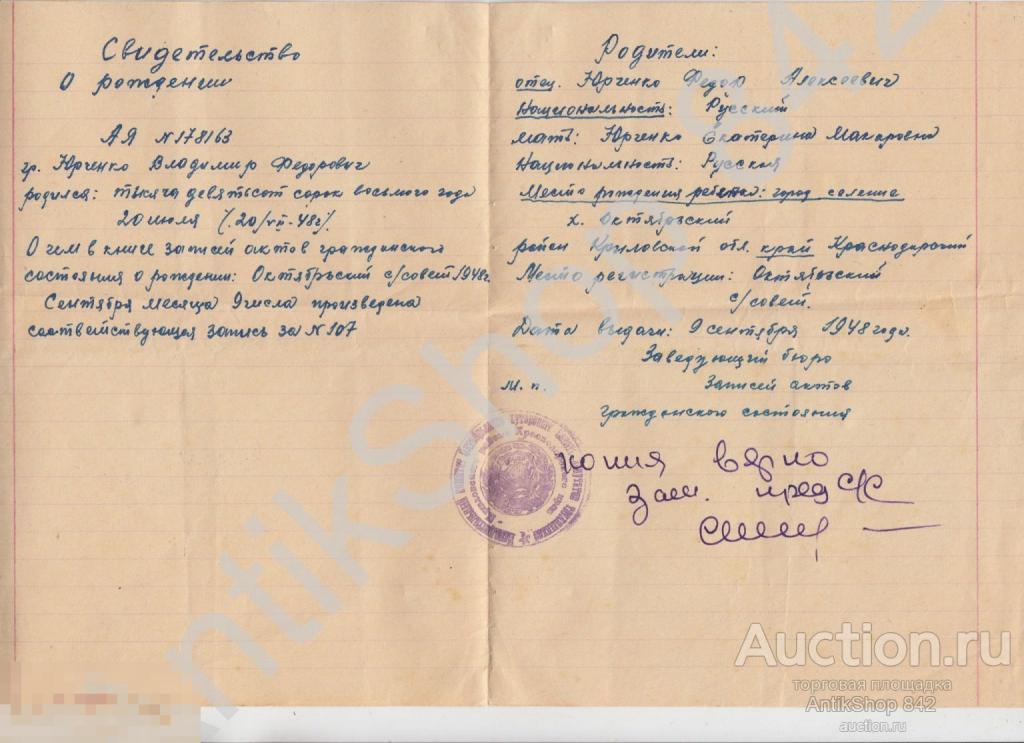 Свидетельство
О рождении
АЯ №178163
гр. Юрченко Владимир Федорович
родился: тысяча девятсот сорок восьмого года
20 июля (.20/VII-48г).
О чем в книге записей актов гражданского
состояния о рождении: Октябрьский с/совет 1948г.
Сентября месяца 9 числа произведена
соответствующая запись за №107
Родители:
отец. Юрченко Федор Алексеевич
Национальность: Русский
мать: Юрченко Екатерина Макаровна
Национальность: Русская
Место рождения ребенка: город селение
х. Октябрьский
район Крыловской обл. край Краснодарский
Место регистрации: Октябрьский
с/совет.
Дата выдачи: 9 сентября 1948 года.
Заведующий бюро
м. п. Записей актов
гражданского состояния
копия верно
Зам. пред С/С
AntikShop 842
Auction.ru
торговая площадка
AntikShop 842
auction.ru